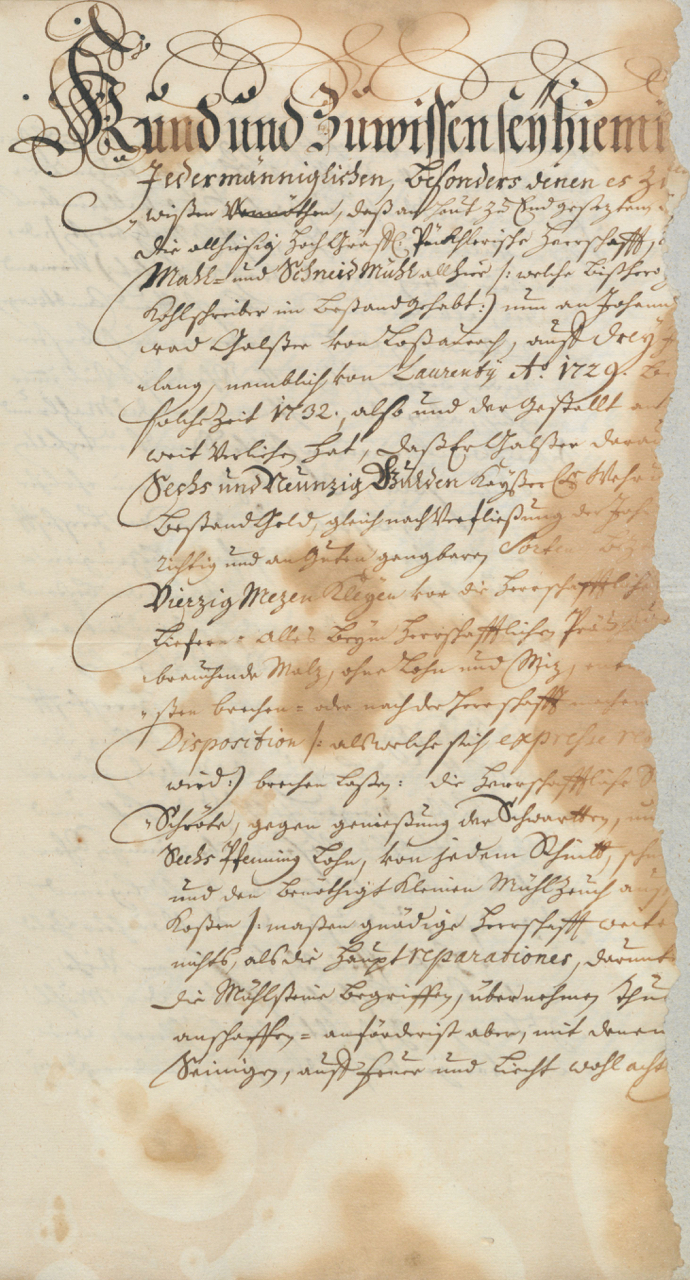 Kund und Zuwissen sey hiemi
Jedermänniglichen, besonders denen es zu
wißen Vonnöthen, daß an heut zu End gesezten
die allhiesig Hoch Gräffl. Pückhlerische Herrschafft,
Mahl- und Schneid Mühl allhier /: welche bißhero
Kohlschreiber im Bestand gehabt :/ nun an Johann
rad Galster von Roßstall, auff drey
lang, nemblich von Laurenty Ao. 1729. bi
solche Zeit 1732., also und der gestallt
weit Verliehen hat, daß Er Galster darau
Sechs und Neunzig Gulden Keyßerl. Wehr
Bestand Geld, gleich nach Verfließung der Jah
richtig und an Guten gangbaren Sorten
Vierzig Mezen Kleyen vor die Herrschafftliche
Liefern = alles beym Herrschafftlichen
brauchende Malz, ohne Lohn und Miz,
sten brechen = oder nach der Herrschafft
Disposition /: als welche sich expresse re
wird :/ brechen laßen: die Herrschafftliche
Schröte, gegen genießung der Schwartten, un
Sechs Pfenning Lohn, von jedem Schnitt,
und den benöthigt kleinen Mühlzeuch
Kosten /: maßen gnädige Herrschafft weite
nichts, als die Haupt reparationes, darunt
die Mühlsteine begriffen, übernehmen thu
anschaffen = anförderist aber, mit denen
Seinigen, auff Feuer und Liecht wohl acht